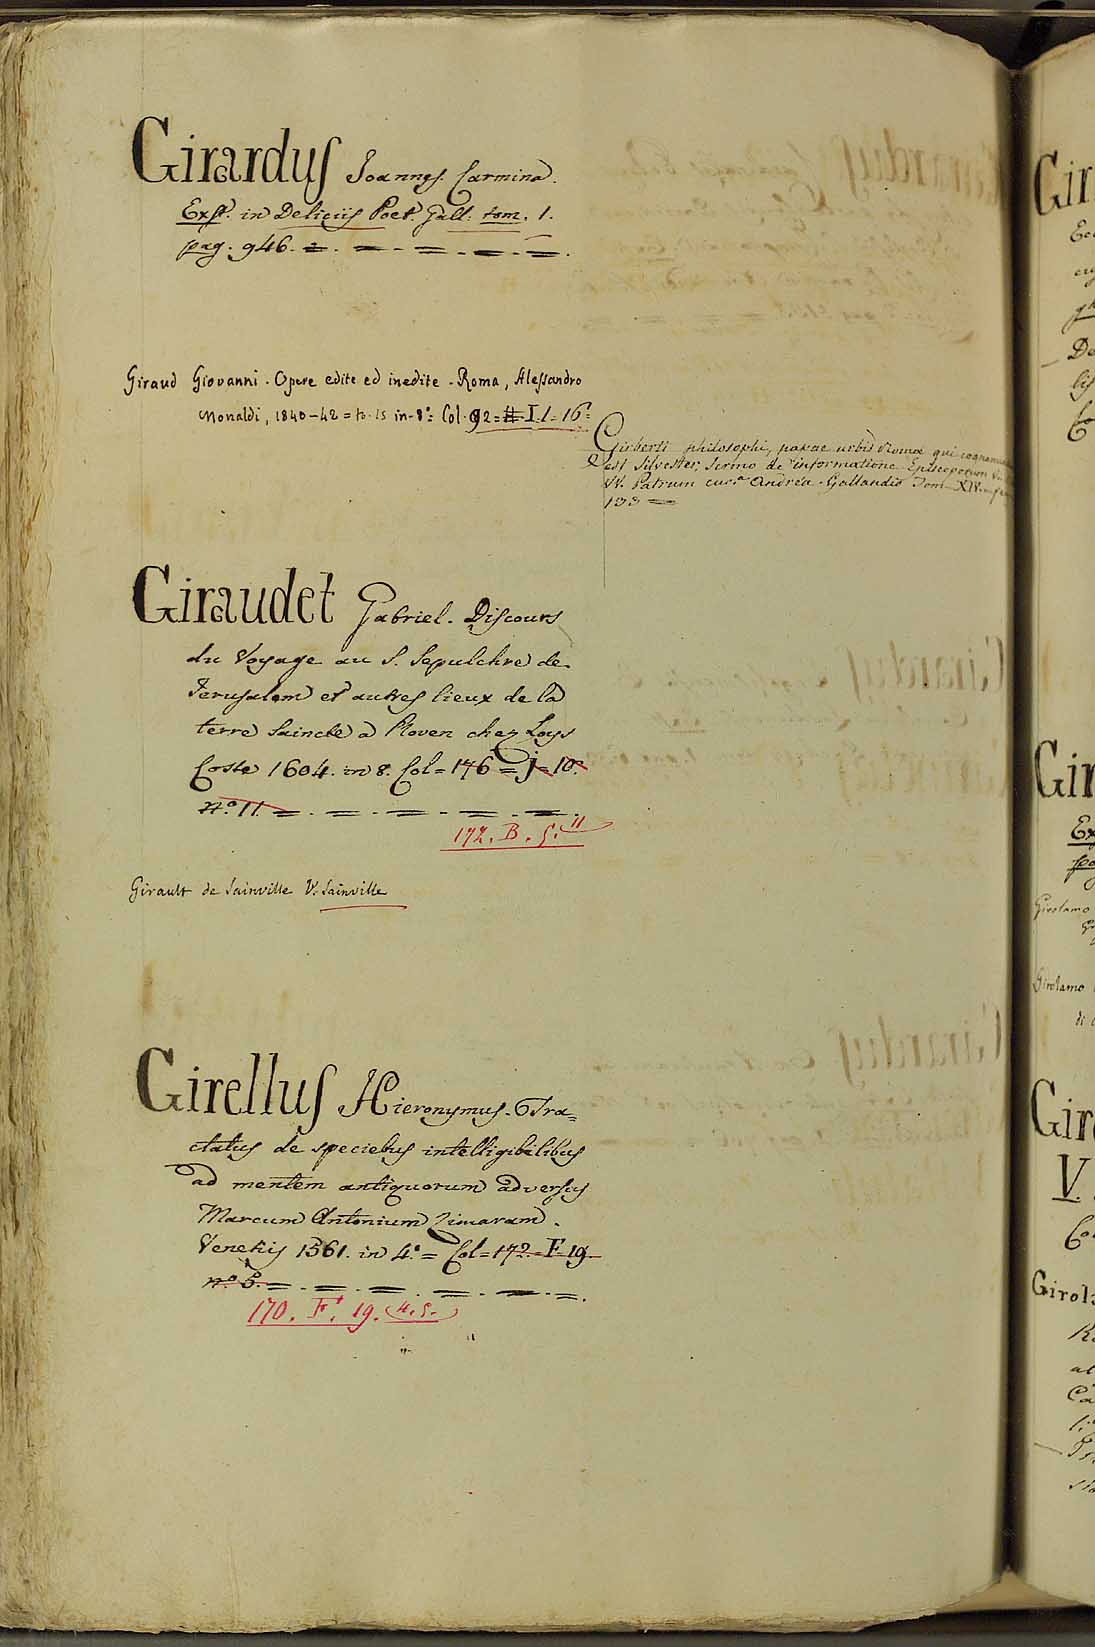 Girardus Joannes. Carmina.
Exst. in Deliciis Poet. Gall. tom. 1.
pag. 946. = . = . = . = . = .
Giraud Giovanni. Opere edite ed inedite - Roma, Alessandro
Monaldi, 1840-42 = to. 15 in-8.° = Col. 92 = I. 1 = 16.
Girberti philosophi, papae urbis Romae qui
est Silvester, Sermo de informatione Episcoporum
VV. Patrum cur.a Andrea Gallandio Tom. XIV.
133 =
Giraudet Gabriel. Discours
du Voyage au S. Sepulchre de
Jerusalem et autres lieux de la
terre Saincte a Roven chez Loys
Coste 1604. in 8. Col = 176 = j = 10.
n.° 11. = . = . = . = . = .
172. B. 5. 11
Girault de Sainville V. Sainville
Girellus Hieronymus. Tra=
ctatus de speciebus intelligibilibus
ad mentem antiquorum adversus
Marcum Antonium Zimaram.
Venetiis 1561. in 4.° = Col = 172 = F. 19.
n.° 5. = . = . = . = . = . = .
170. F. 19. 4. 5.
Gir
Gir
Girolamo
Girolamo
di
Giro
V.
Girola